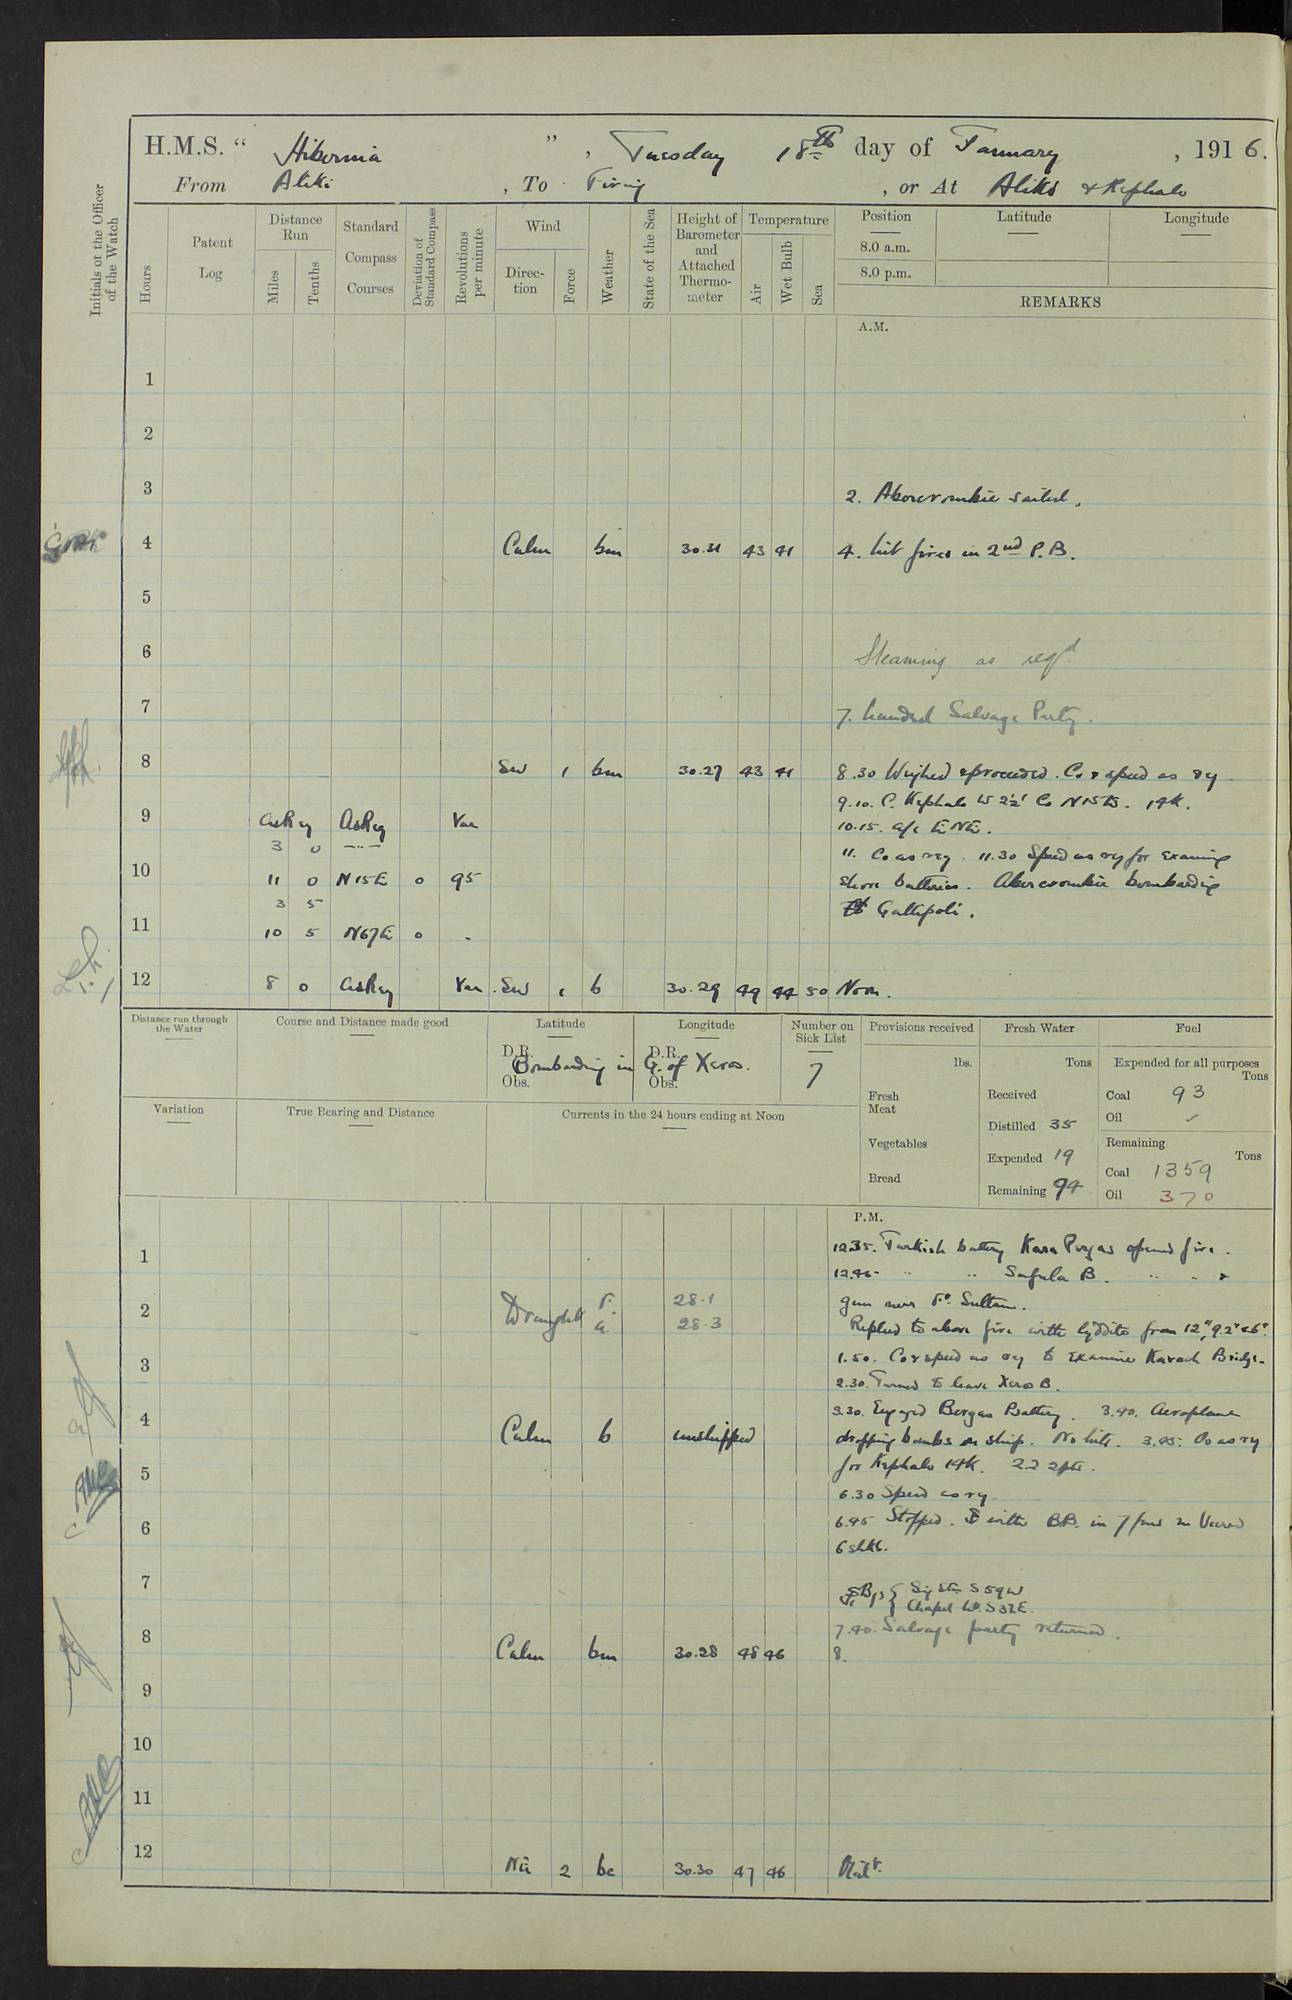 H.M.S. " Hibernia ", Tuesday 18th day of January, 1916.
From Aliki, To Firing, or At Aliki & Kephalo
Initials of the Officer of the Watch
Hours
Patent Log
Distance Run
Miles
Tenths
Standard Compass Courses
Deviation of Standard Compass
Revolutions per minute
Wind
Direction
Force
Weather
State of the Sea
Height of Barometer and Attached Thermometer
Temperature
Air
Wet Bulb
Sea
Position
Latitude
Longitude
8.0 a.m.
8.0 p.m.
REMARKS
A.M.
1
2
3
2. Abercrombie sailed.
4 Calm bm 30.31 43 41 4. Lit fires in 2nd P.B.
5
6
Steaming as reqd.
7
7. Landed Salvage Party.
8 SW 1 bm 30.27 43 41 8.30 Weighed & proceeded. Co & speed as req
9.10. C. Kephalo W 2½' Co N15E. 14K.
9 As Req As Req Var
10.15. a/c ENE.
3 0
11. Co as req. 11.30 Speed as req for examing
10 11 0 N15E 0 95
shore batteries. Abercrombie bombarding
3 5
Gallipoli.
11 10 5 N67E 0
12 8 0 As Req Var SW 1 b 30.29 49 44 50 Noon.
Distance run through the Water
Course and Distance made good
Latitude
Longitude
Number on Sick List
Provisions received
Fresh Water
Fuel
D.R.
Obs.
D.R.
Obs.
Bombarding in G. of Xeros.
7
lbs.
Tons
Expended for all purposes
Tons
Fresh Meat
Received
Coal 93
Oil
Variation
True Bearing and Distance
Currents in the 24 hours ending at Noon
Distilled 35
Vegetables
Remaining
Tons
Expended 19
Coal 1359
Bread
Remaining 94
Oil 370
P.M.
12.35. Turkish battery Kara Purgas opened fire.
1
12.45 " " Safula B. " " &
2 Draught F. 28.1 gun near Ft. Sultan.
a 28.3 Replied to above fire with lyddite from 12", 9.2" & 6".
3
1.50. Co & speed as req to examine Kavack Bridge.
2.30. Turned to leave Xeros B.
3.30. Engaged Bergas Battery. 3.40. Aeroplane
4 Calm b unshipped dropping bombs on ship. No hits. 3.45. Co as req
for Kephalo 14K.
5
6.30 Speed as req.
6
6.45 Stopped. with BB. in 7 fms Veered
6 shks.
7
Bgs { Sig Stn S59W
Chapel S32E.
7.40. Salvage party returned.
8 Calm bm 30.28 48 46 8.
9
10
11
12 2 bc 30.30 47 46 Midt.